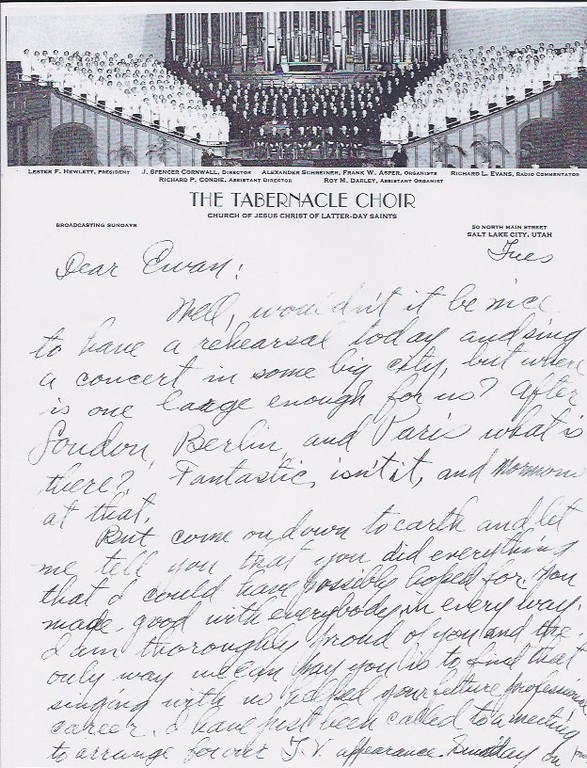 LESTER F. HEWLETT, PRESIDENT J. SPENCER CORNWALL, DIRECTOR ALEXANDER SCHREINER, FRANK W. ASPER, ORGANISTS RICHARD L. EVANS, RADIO COMMENTATOR
RICHARD P. CONDIE, ASSISTANT DIRECTOR ROY M. DARLEY, ASSISTANT ORGANIST
THE TABERNACLE CHOIR
CHURCH OF JESUS CHRIST OF LATTER-DAY SAINTS
BROADCASTING SUNDAYS
50 NORTH MAIN STREET
SALT LAKE CITY, UTAH
Tues
Dear Ewan:
Well, wouldn't it be nice
to have a rehearsal today and sing
a concert in some big city, but when
is one large enough for us? After
London, Berlin, and Paris what is
there? Fantastic, isn't it, and Mormons
at that.
But come on down to earth and let
me tell you that you did everything
that I could have possibly hoped for. You
made good with everybody in every way.
I am thoroughly proud of you and the
only way we can pay you is to find that
singing with us helped your future professional
career. I have just been called to a meeting
to arrange for our T.V. appearance. Sunday on